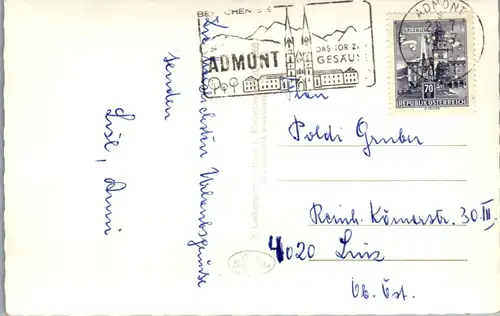 BESUCHEN SIE
ADMONT
DAS TOR ZUM
GESÄUSE
ADMONT
70
REPUBLIK ÖSTERREICH
Die herzlichsten Urlaubsgrüsse
senden
Lisl, Anni
Frau
Poldi Gruber
Reinh. Kömerstr. 30 III.
4020 Linz
Ob. Öst.